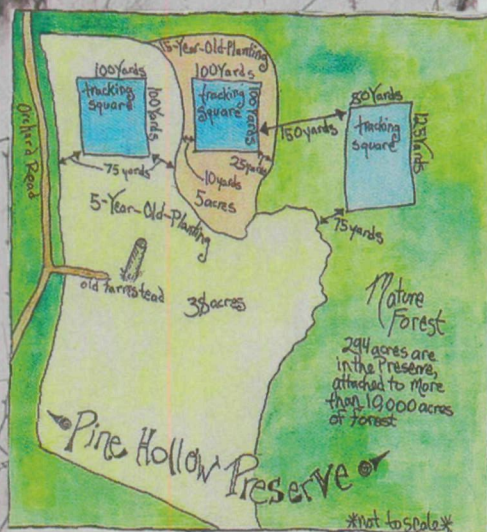 15-Year-Old-Planting
100 Yards
tracking
square
100 Yards
75 yards
100 Yards
tracking
square
100 Yards
25 yards
10 yards
5 acres
150 yards
80 Yards
tracking
square
125 Yards
75 yards
Orchard Road
5-Year-Old-Planting
old farmstead
38 acres
Mature
Forest
294 acres are
in the Preserve,
attached to more
than 10,000 acres
of forest
Pine Hollow Preserve
*not to scale*